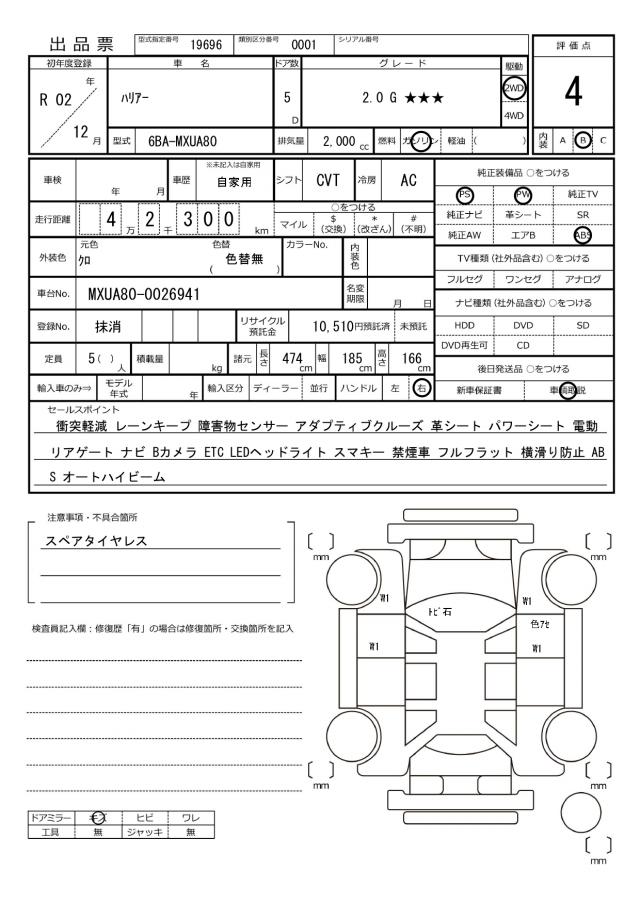 出品票 型式指定番号 19696 類別区分番号 0001 シリアル番号
評価点
4
内装 A B C
初年度登録 車名 ドア数 グレード 駆動
R 02 年 12 月 ﾊﾘｱｰ 5 D 2.0 G ★★★ 2WD 4WD
型式 6BA-MXUA80 排気量 2,000 cc 燃料 ガソリン 軽油 ( )
車検 年 月 車歴 ※未記入は自家用 自家用 シフト CVT 冷房 AC
走行距離 4 万 2 千 3 0 0 km ○をつける
マイル $ (交換) * (改ざん) # (不明)
外装色 元色 ｸﾛ 色替 ( 色替無 ) カラーNo. 内装色
車台No. MXUA80-0026941 名変期限 月 日
登録No. 抹消 リサイクル預託金 10,510円預託済 未預託
定員 5 ( ) 人 積載量 kg 諸元 長さ 474 cm 幅 185 cm 高さ 166 cm
輸入車のみ⇒ モデル年式 年 輸入区分 ディーラー 並行 ハンドル 左 右
純正装備品 ○をつける
PS PW 純正TV
純正ナビ 革シート SR
純正AW エアB ABS
TV種類 (社外品含む) ○をつける
フルセグ ワンセグ アナログ
ナビ種類 (社外品含む) ○をつける
HDD DVD SD
DVD再生可 CD
後日発送品 ○をつける
新車保証書 車輌取説
セールスポイント
衝突軽減 レーンキープ 障害物センサー アダプティブクルーズ 革シート パワーシート 電動
リアゲート ナビ Bカメラ ETC LEDヘッドライト スマキー 禁煙車 フルフラット 横滑り防止 AB
S オートハイビーム
注意事項・不具合箇所
スペアタイヤレス
検査員記入欄：修復歴「有」の場合は修復箇所・交換箇所を記入
ドアミラー キズ ヒビ ワレ
工具 無 ジャッキ 無
〔 〕 mm
〔 〕 mm
W1
W1
ﾄﾋﾞ石
色ｱｾ
W1
W1
〔 〕 mm
〔 〕 mm
〔 〕 mm